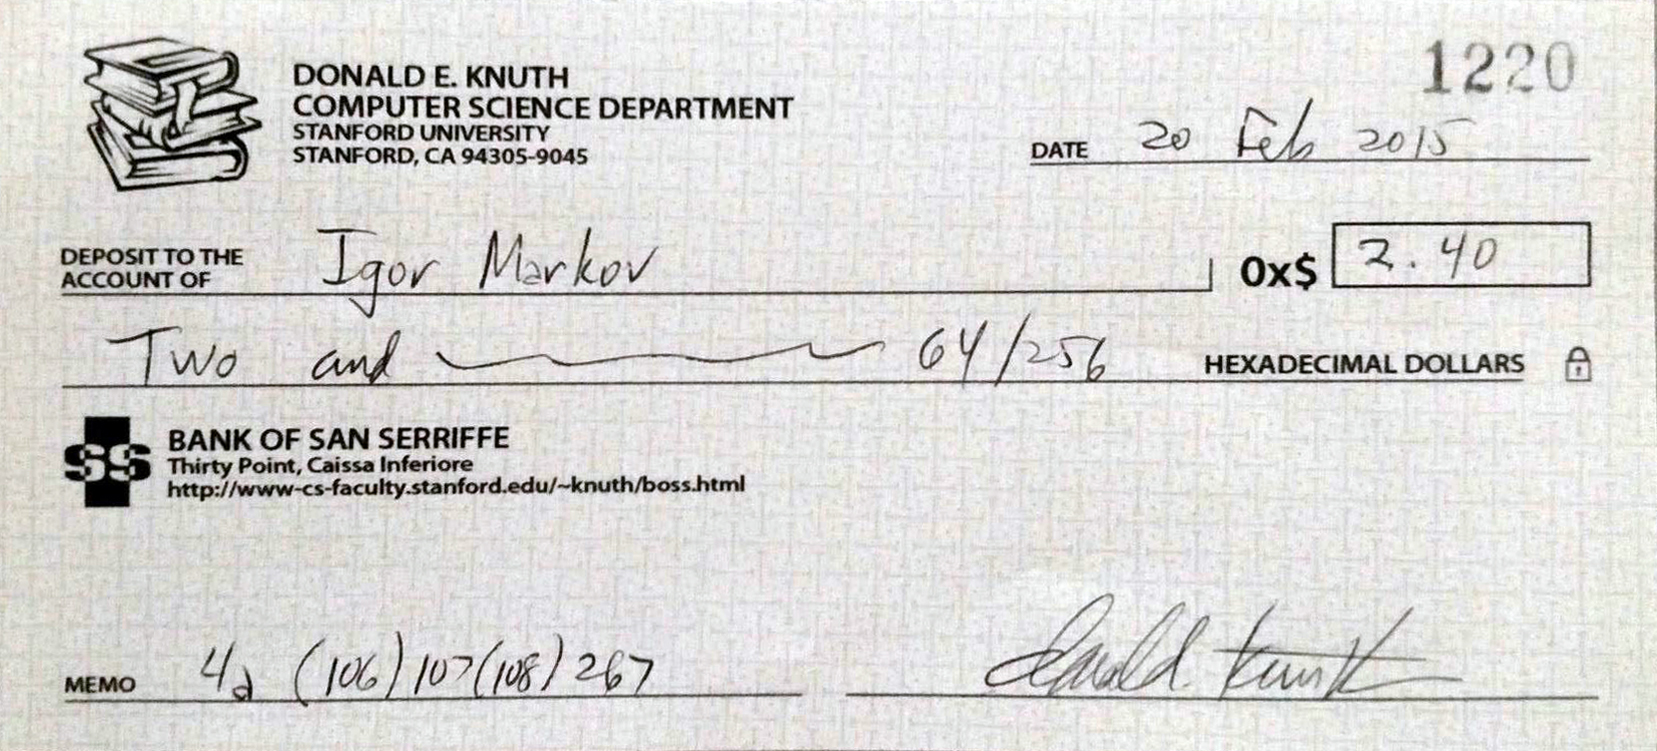 1220
DONALD E. KNUTH
COMPUTER SCIENCE DEPARTMENT
STANFORD UNIVERSITY
STANFORD, CA 94305-9045
DATE 20 Feb 2015
DEPOSIT TO THE
ACCOUNT OF Igor Markov 0x$ 2.40
Two and 64/256 HEXADECIMAL DOLLARS
SS BANK OF SAN SERRIFFE
Thirty Point, Caissa Inferiore
http://www-cs-faculty.stanford.edu/~knuth/boss.html
MEMO 4a (106)107(108)267 Donald Knuth